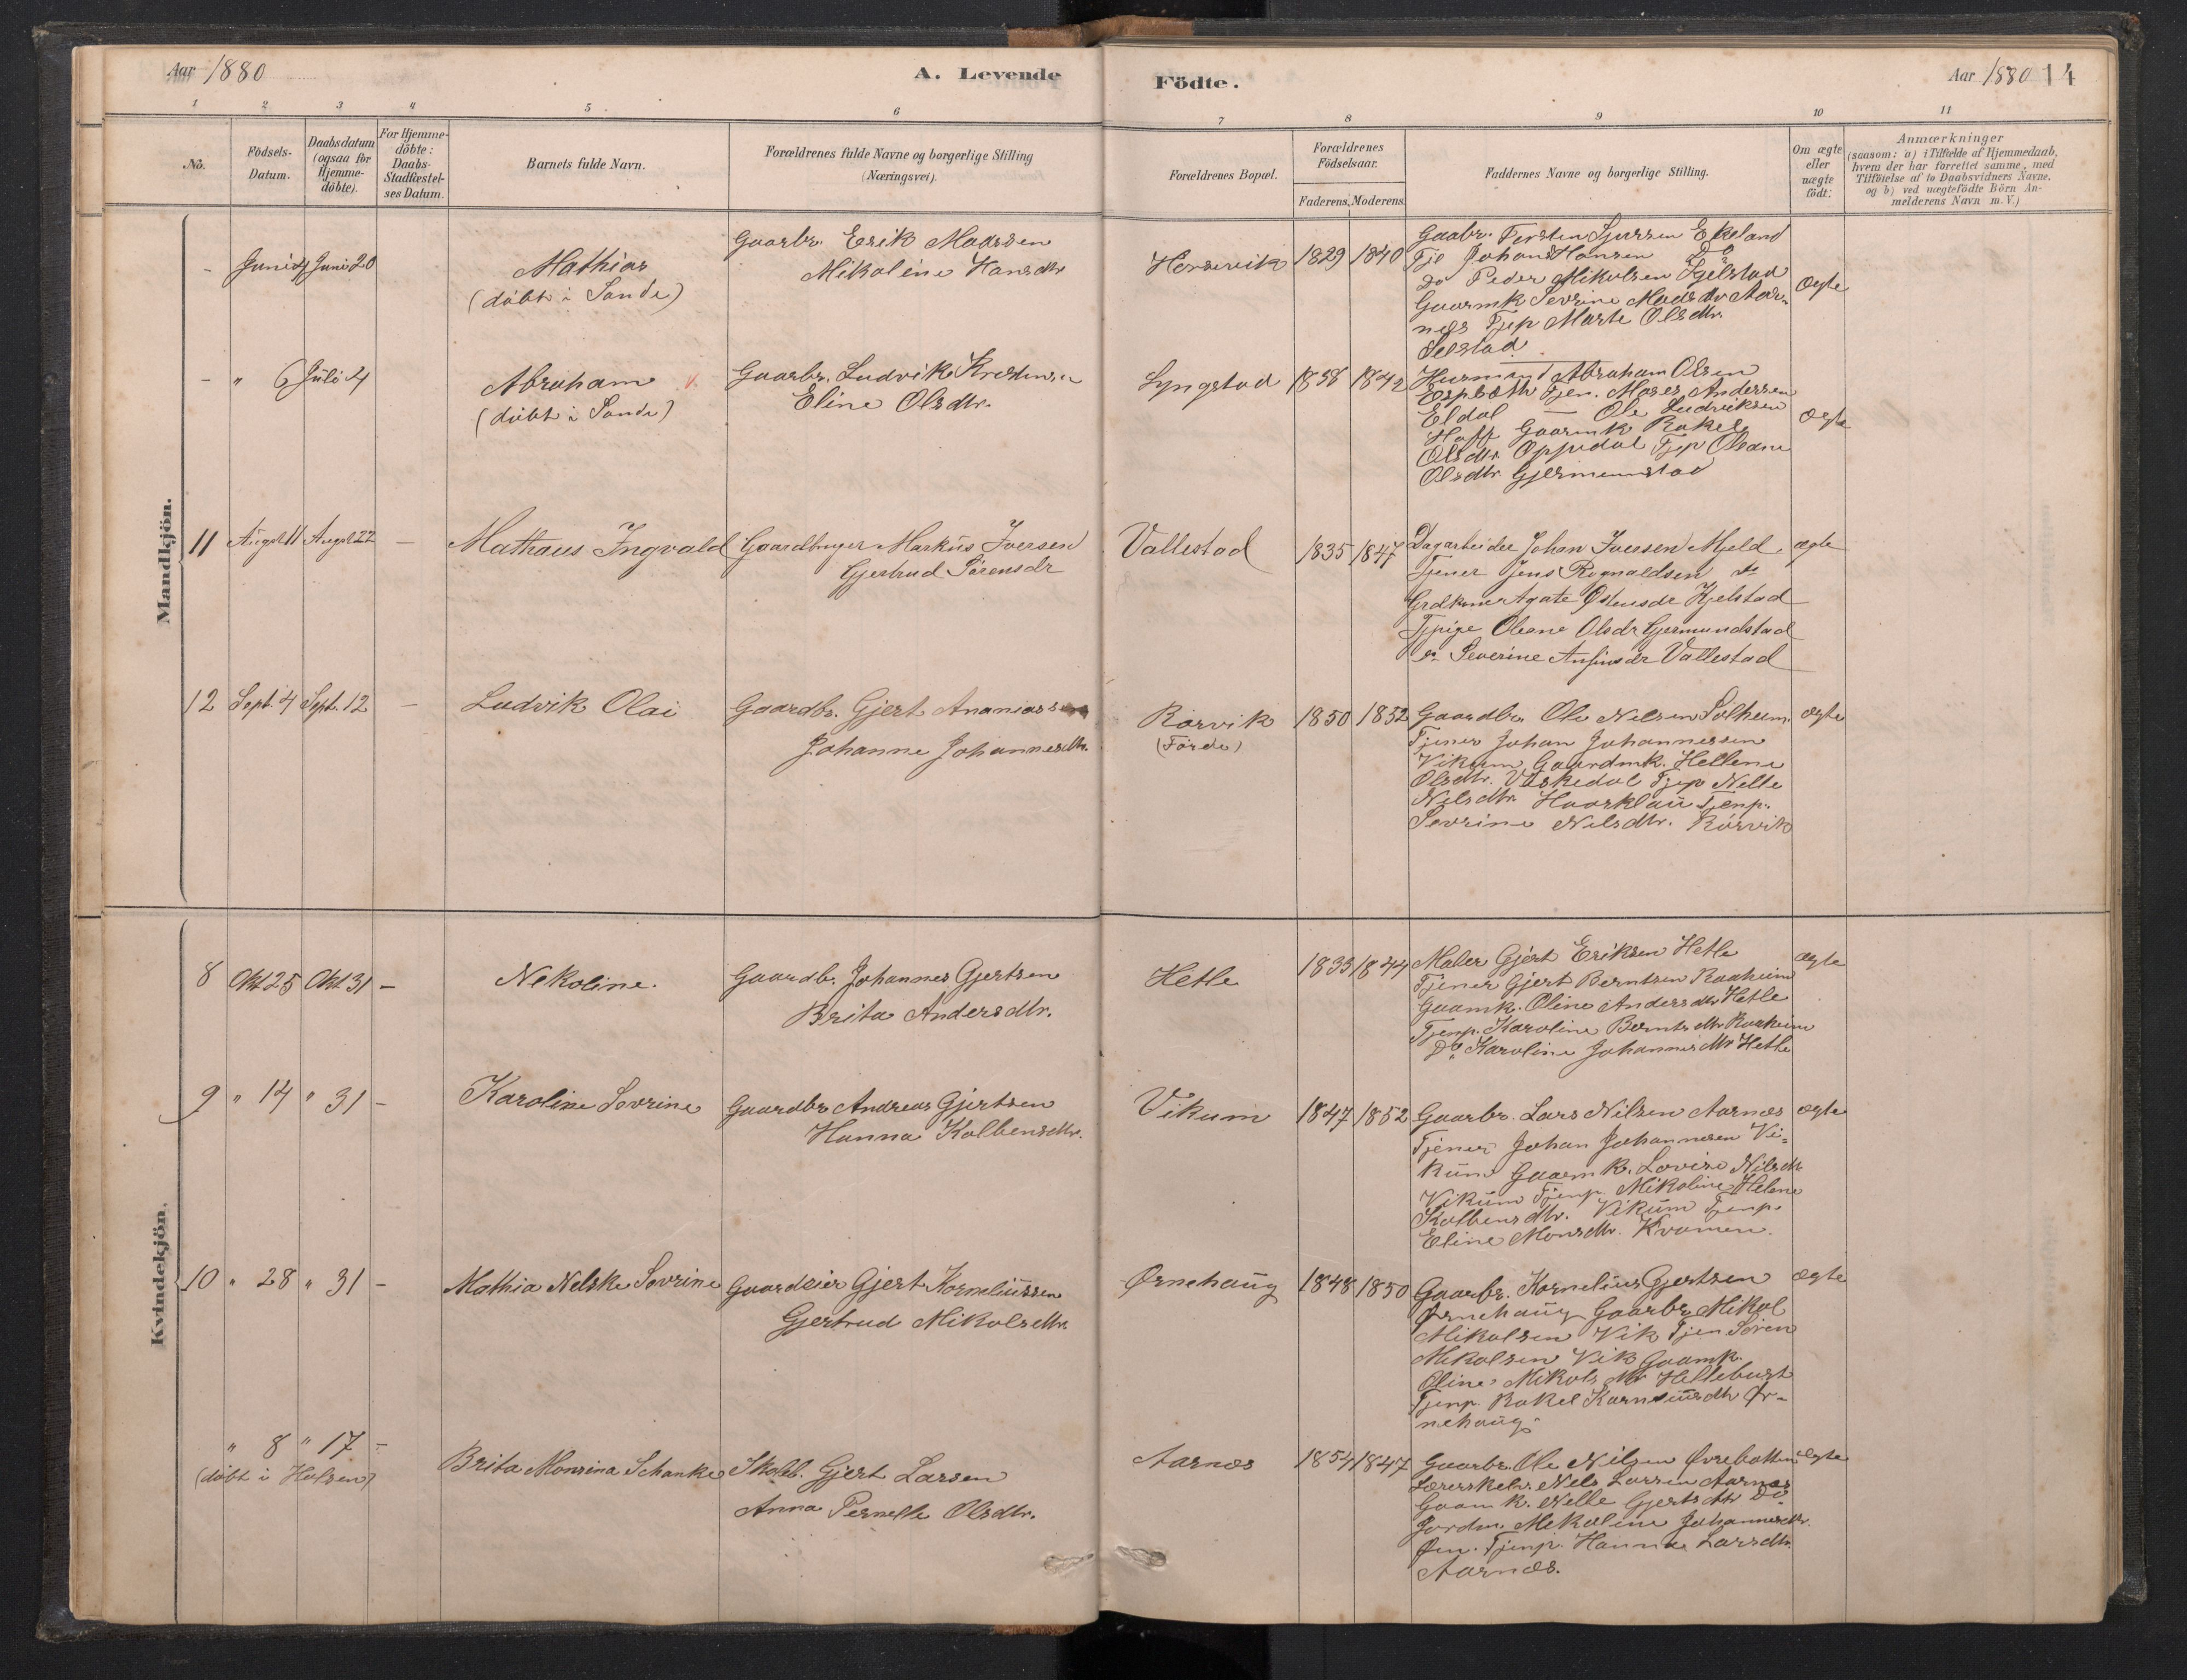 Aar 1880
A. Levende
Födte.
Aar 1880 14
1 2 3 4 5 6 7 8 9 10 11
No.
Födsels-
Datum.
Daabsdatum
(ogsaa for
Hjemme-
döbte).
For Hjemme-
döbte:
Daabs-
Stadfæstel-
ses Datum.
Barnets fulde Navn.
Forældrenes fulde Navne og borgerlige Stilling
(Næringsvei).
Forældrenes Bopæl.
Forældrenes
Födselsaar.
Faderens, Moderens.
Faddernes Navne og borgerlige Stilling.
Om ægte
eller
uægte
födt.
Anmærkninger
(saasom: a) i Tilfælde af Hjemmedaab,
hvem der har forrettet samme, med
Tilföielse af to Daabsvidners Navne,
og b) ved uægtefödte Börn An-
melderens Navn m. V.)
Mandkjön.
- Juni Juni 20
Mathias
(döbt i Sande)
Gaarbr. Erik Madssen
Mikoline Hansdtr
Hersvik
1829 1840
Gaabr. Torsten Sjursen Ekeland
Tje Johan Hansen Do
Do Peder Mikolsen Kjelstad
Gaarmk Sevrine Madsdtr Aar-
næs Tjep Marte Olsdtr.
Selstad
ægte
- " 6 Juli 4
Abraham
(döbt i Sande)
Gaarbr. Ludvik
Eline Olsdtr.
Lyngstad
1838 1842
Husmand Abraham Olsen
Tjen. Moses Andersen
Eldal — Ole Ludviksen
Hoff Gaarmk Rakel
Olsdtr. Oppedal Tjep Oleane
Olsdtr. Gjermundstad
ægte
11 August 11 August 22 —
Mathæus Ingvald
Gaardbruger Markus Iversen
Gjertrud Sörensdr
Vallestad
1835 1847
Dagarbeider Johan Iversen Mjeld
Tjener Jens Ragnaldsen do
Grdkone Agate Østensdr Kjelstad
Tjpige Oleane Olsdr Gjermundstad
do Severine Anfinsdr Vallestad
ægte
12 Sept. 4 Sept. 12 —
Ludvik Olai
Gaardbr. Gjert Ananiassen
Johanne Johannesdtr.
Rörvik
(Förde)
1850 1852
Gaardbr. Ole Nilsen Solheim
Tjener Johan Johannessen
Vikum Gaardmk. Hellene
Olsdtr. Tjep Nelle
Nilsdtr. Haarklau Tjenp.
Sevrine Nilsdtr. Rörvik
ægte
Kvindekjön.
8 Okt 25 Okt 31 —
Nekoline.
Gaardb. Johannes Gjertsen
Brita Andersdtr.
Hetle
1833 1844
Maler Gjert Eriksen Hetle
Tjener Gjert Berntsen Raaheim
Gaamk. Oline Andersdtr Hetle
Tjenp. Karoline Berntsdtr Raaheim
Do Karoline Johannesdtr Hetle
ægte
9 " 14 " 31 —
Karoline Sevrine
Gaardbr Andreas Gjertsen
Hanna Kolbensdtr.
Vikum
1847 1852
Gaarbr. Lars Nilsen Aarnæs
Tjener Johan Johannesen Vi-
kum Gaarmk. Lovise Nilsdtr
Vikum Tjenp. Mikoline Helene
Kolbensdtr. Vikum Tjenp.
Eline Monsdtr. Kvamen.
ægte
10 " 28 " 31 —
Mathia Nelske Sevrine
Gaardeier Gjert Korneliussen
Gjertrud Mikolsdtr.
Ørnehaug
1848 1850
Gaarbr. Kornelius Gjertsen
Ørnehaug Gaarbr Mikol
Mikolsen Vik Tjen Sören
Mikolsen Vik Gaamk.
Oline Mikolsdtr Hellebust
Tjenp. Rakel Korneliusdtr Ør-
nehaug.
ægte
" 8 " 17 —
(döbt i Holsen)
Brita Monsina Schanke
Skoleb. Gjert Larsen
Anna Pernelle Olsdtr.
Aarnæs
1854 1847
Gaarbr. Ole Nilsen Øvrebotten
Nels Larsen Aarnæs
Gaamk. Nelle Gjertsdtr Do
Jordm. Mikoline Johannesdtr.
Øen. Tjenp. Hanna Larsdtr.
Aarnæs.
ægte